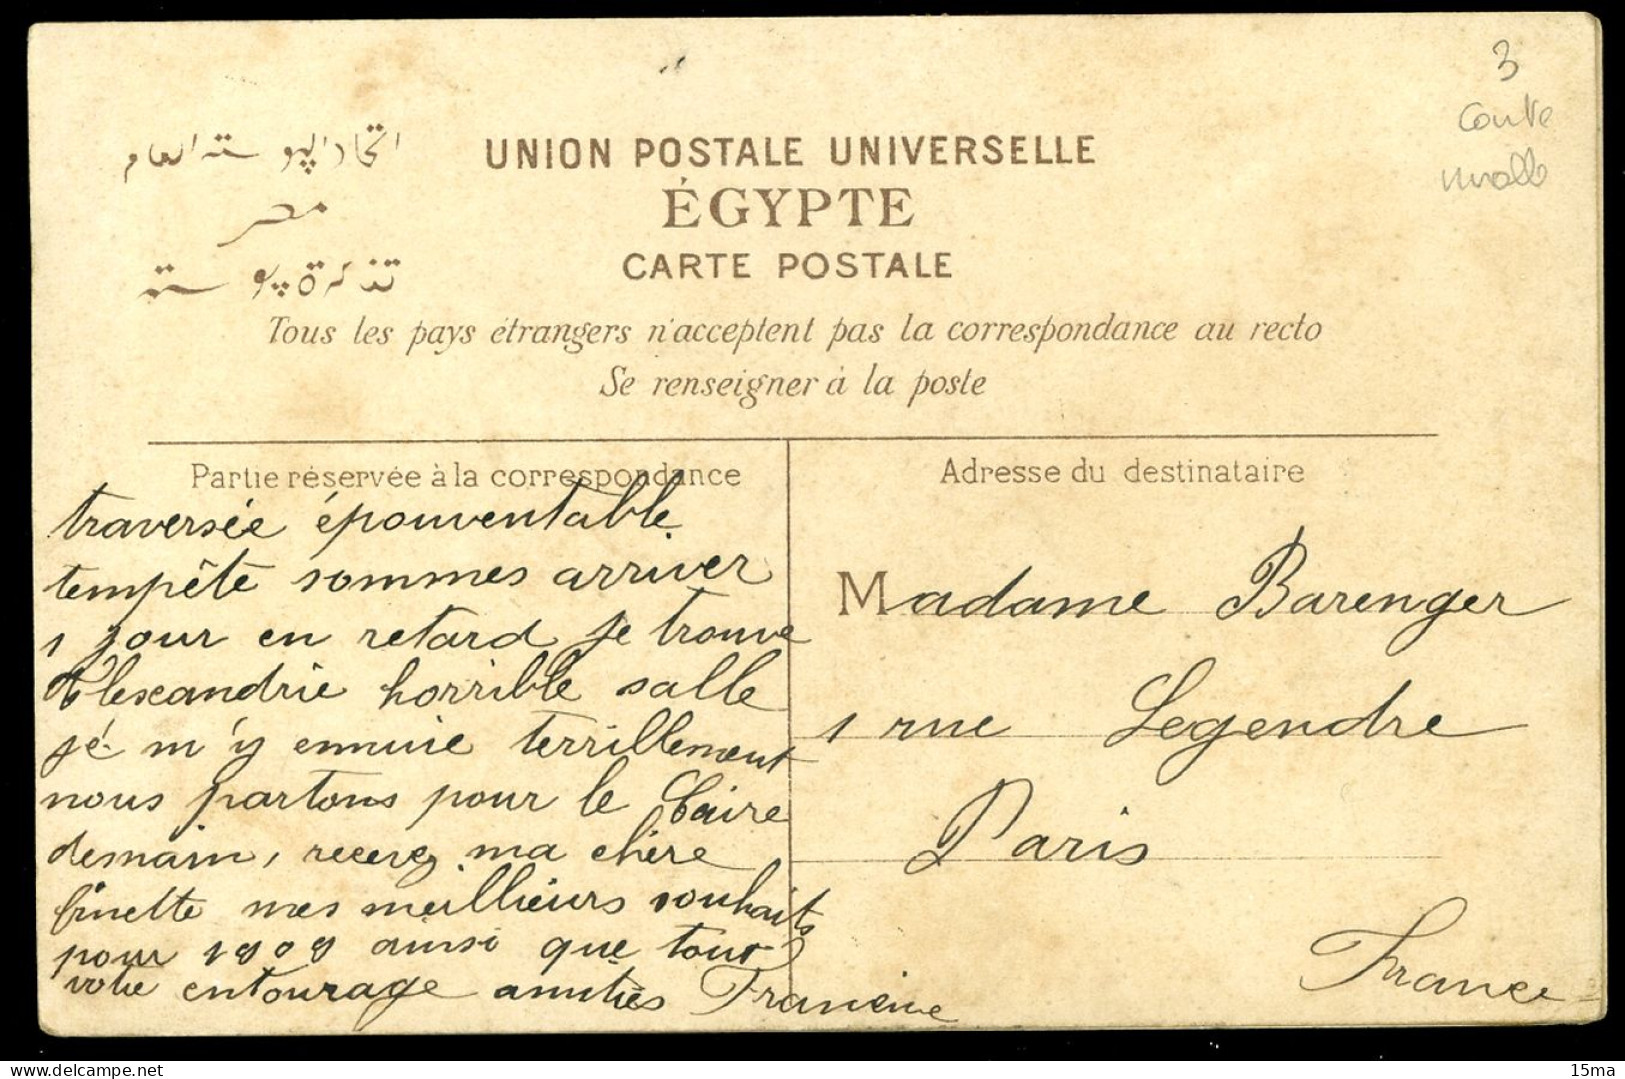 3
اتحاد الپوسته العام
مصر
تذكرة پوسته
UNION POSTALE UNIVERSELLE
ÉGYPTE
CARTE POSTALE
Tous les pays étrangers n'acceptent pas la correspondance au recto
Se renseigner à la poste
Partie réservée à la correspondance
traversée épouventable
tempête sommes arriver
1 jour en retard je trouve
Alexandrie horrible salle
je m'y ennuie terrillement
nous partons pour le Caire
demain, recevez ma chère
finette mes meillieurs souhaits
pour 1909 ainsi que tour
votre entourage amitiés Francine
Adresse du destinataire
Madame Barenger
1 rue Legendre
Paris
France
15ma